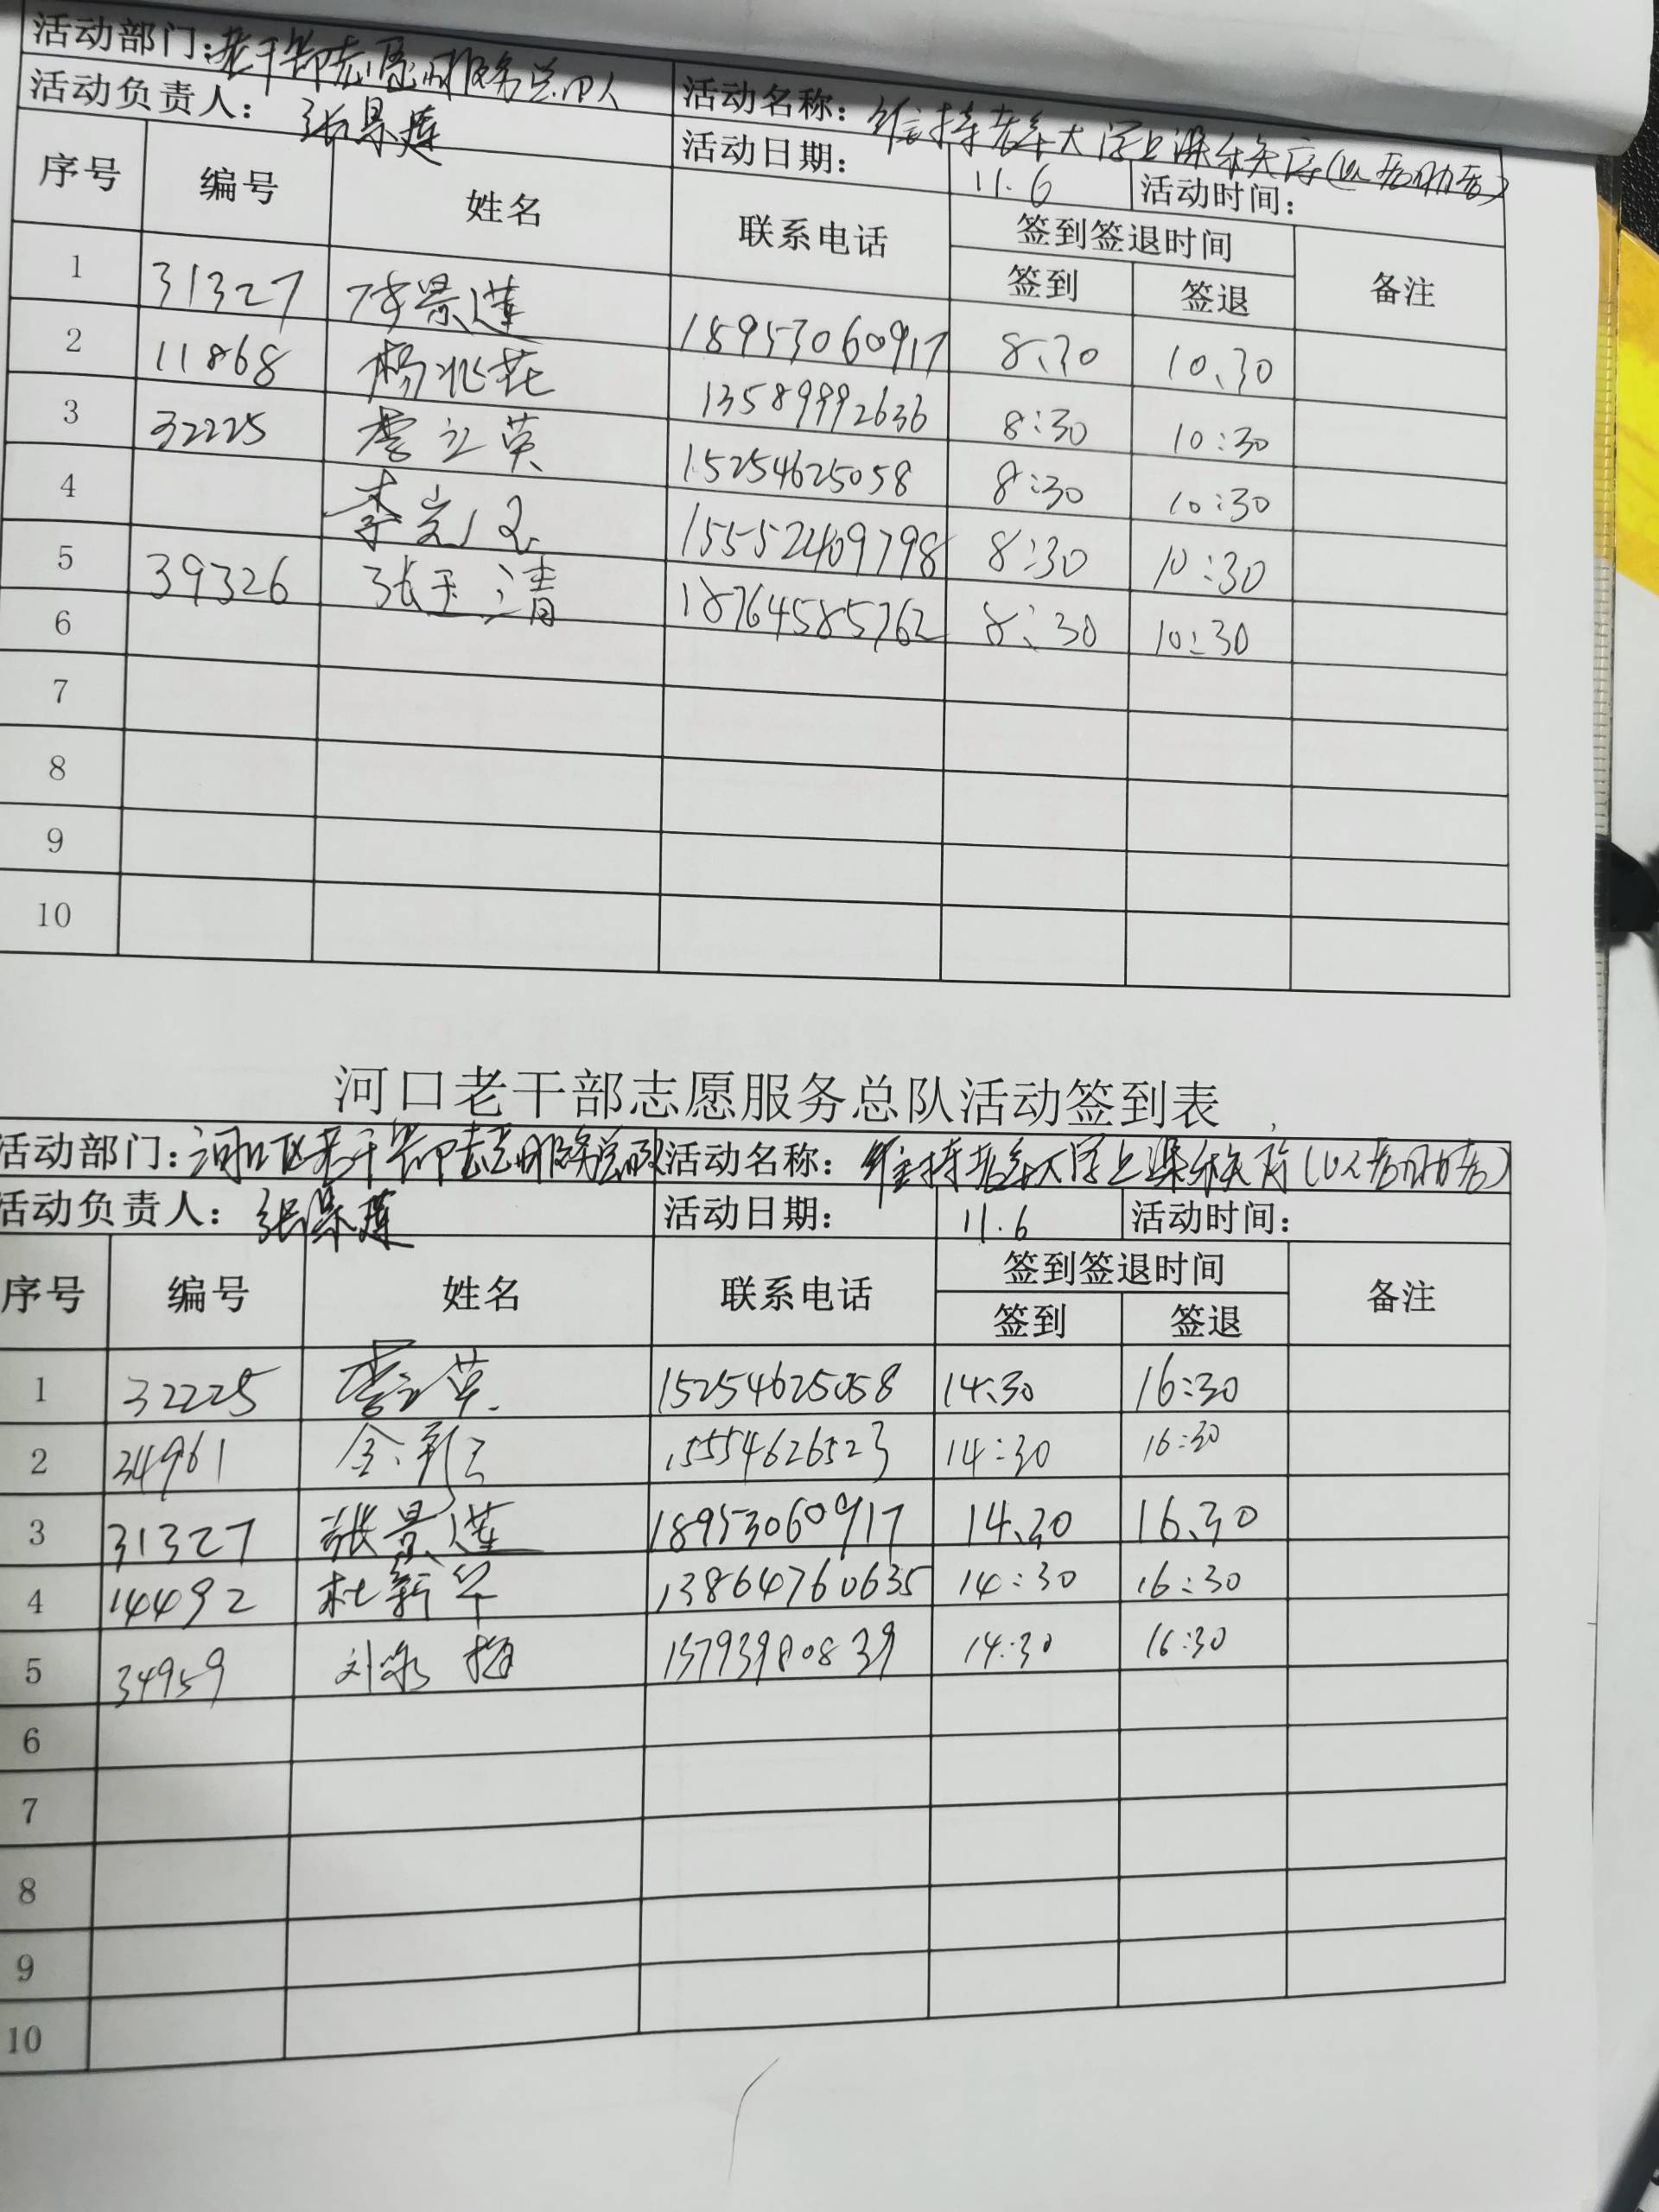 活动部门：老干部志愿服务总队 活动名称：维持老年大学上课秩序（以老助老）
活动负责人：张景莲 活动日期：11.6 活动时间：
序号 编号 姓名 联系电话 签到签退时间 备注
签到 签退
1 31327 张景莲 18953060917 8、30 10、30
2 11868 杨兆花 13589992636 8:30 10:30
3 32225 李立英 15254625058 8:30 10:30
4 李 15552409798 8:30 10:30
5 39326 张玉清 18764585762 8:30 10:30
6
7
8
9
10
河口老干部志愿服务总队活动签到表
活动部门：河口区老干部志愿服务总队 活动名称：维持老年大学上课秩序（以老助老）
活动负责人：张景莲 活动日期：11.6 活动时间：
序号 编号 姓名 联系电话 签到签退时间 备注
签到 签退
1 32225 李立英 15254625058 14、30 16:30
2 34961 金 15554626523 14:30 16:30
3 31327 张景莲 18953060917 14、30 16、30
4 14492 杜新华 13864760635 14:30 16:30
5 34959 刘咏梅 14:30 16:30
6
7
8
9
10